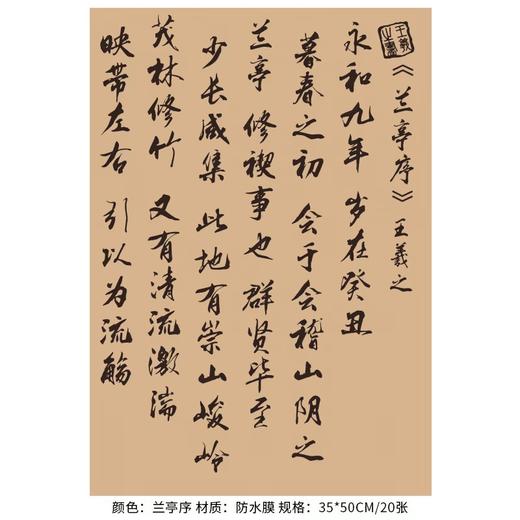 《兰亭序》王羲之
永和九年 岁在癸丑
暮春之初 会于会稽山阴之
兰亭 修禊事也 群贤毕至
少长咸集 此地有崇山峻岭
茂林修竹 又有清流激湍
映带左右 引以为流觞
颜色：兰亭序 材质：防水膜 规格：35*50CM/20张